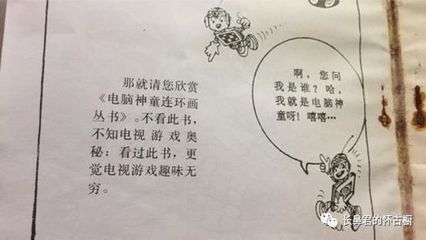 那就请您欣赏
《电脑神童连环画
丛书》。不看此书，
不知电视游戏奥
秘；看过此书，更
觉电视游戏趣味无
穷。
啊，您问
我是谁？哈，
我就是电脑神
童呀！嘻嘻…
长鼻君的怀古橱